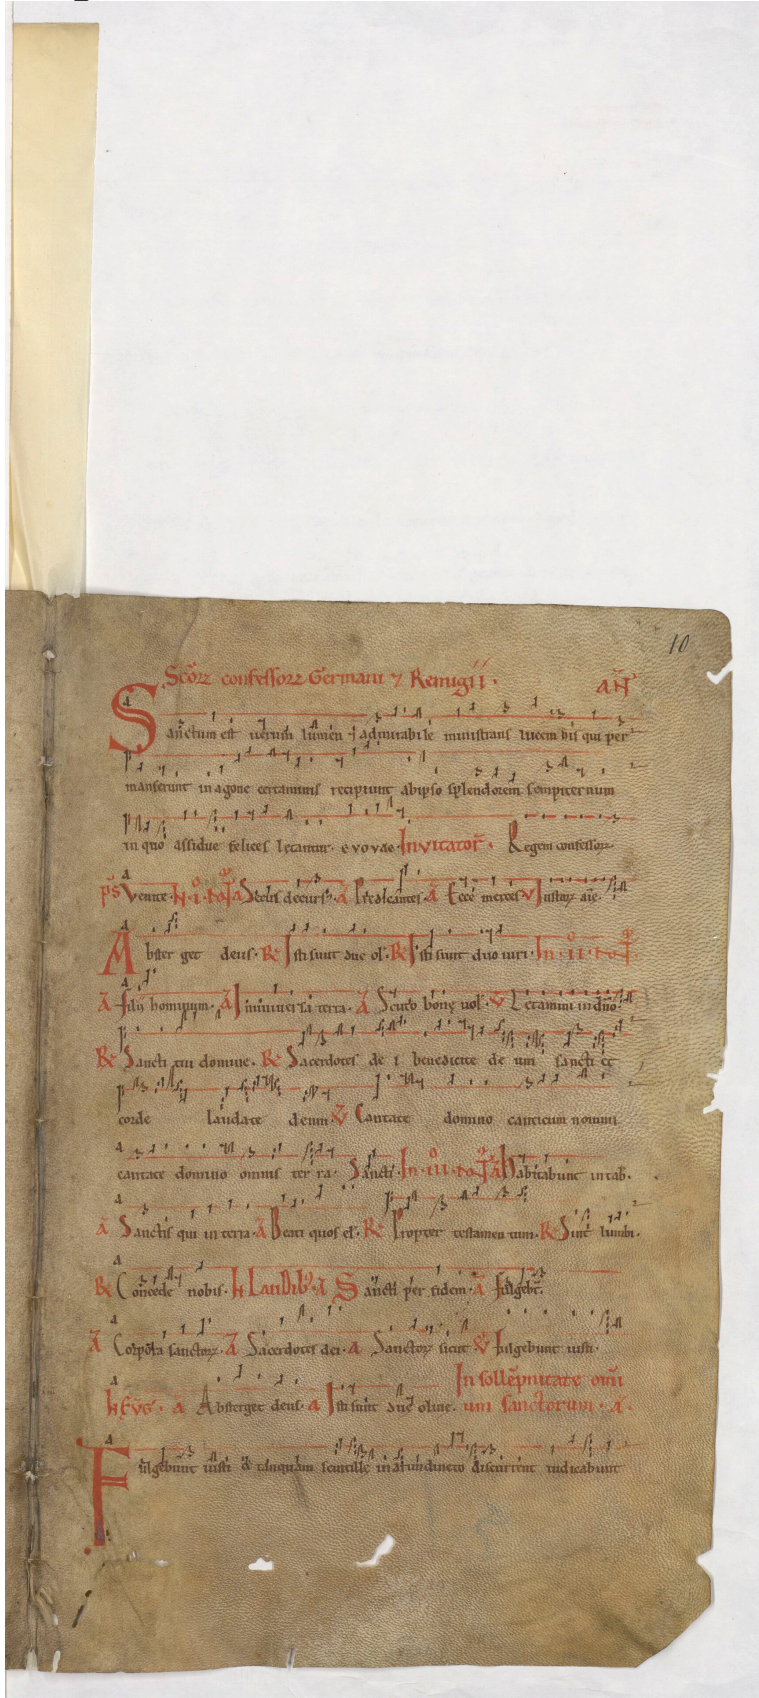 10
Scõrꝝ confessorꝝ Germani ⁊ Remigii. AN̄
Sanctum est uerum lumen ⁊ admirabile ministrans lucem hiis qui per
manserunt in agone certaminis recipiunt ab ipso splendorem sempiternum
in quo assidue felices letantur. evovae. Invitator̃. Regem confessorꝝ
p̃s Venite. Secus decurs. ã Predicantes. ã Ecce merces v Iustorꝝ aĩe.
Absterget deus. R̃ Isti sunt due ol. R̃ Isti sunt duo uiri. In .ii. noct̃.
ã Filii hominum. ã In universa terra. ã Scuto bonę uol. v̄ Letamini in dño.
R̃ Sancti tui domine. R̃ Sacerdotes de i benedicite de um sancti et
corde laudate deum. v̄ Cantate domino canticum nouum
cantate domino omnis ter ra. Sancti. In .iii. noct̃ ã Habitabunt in tab.
ã Sanctis qui in terra. ã Beati quos el. R̃ Propter testamen tum. R̃ Sint lumbi.
R̃ Concede nobis. Laudibꝰ. ã Sancti per fidem. ã Fulgebt̃.
ã Corpora sanctorꝝ. ã Sacerdotes dei. a Sanctorꝝ sicut v̄ Fulgebunt iusti.
a Absterget deus. a Isti sunt due oliue. In sollẽpnitate omĩ
um sanctorum. ã.
Fulgebunt iusti & tanquam scintille in arundineto discurrent iudicabunt